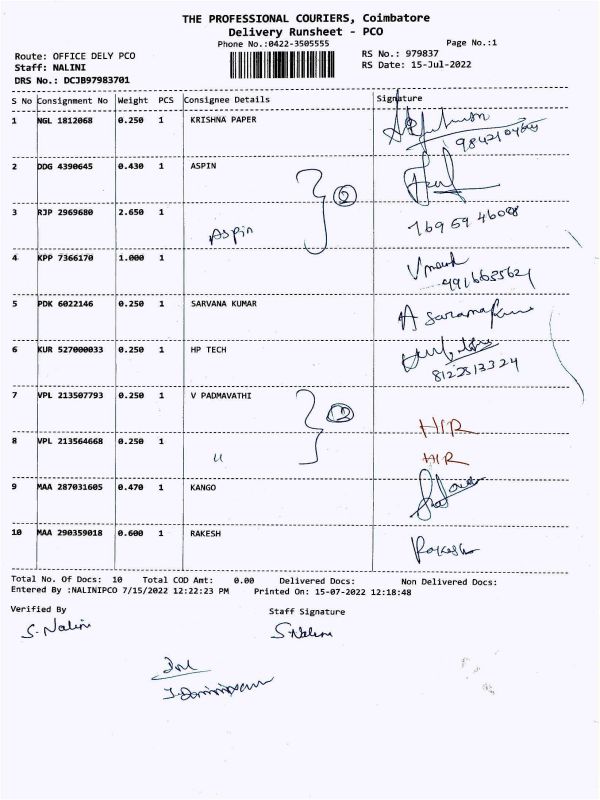 THE PROFESSIONAL COURIERS, Coimbatore
Delivery Runsheet - PCO
Phone No.:0422-3505555 Page No.:1
Route: OFFICE DELY PCO RS No.: 979837
Staff: NALINI RS Date: 15-Jul-2022
DRS No.: DCJB97983701
S No Consignment No Weight PCS Consignee Details Signature
1 NGL 1812068 0.250 1 KRISHNA PAPER
2 DDG 4390645 0.430 1 ASPIN
②
3 RJP 2969680 2.650 1
Aspin
4 KPP 7366170 1.000 1
5 PDK 6022146 0.250 1 SARVANA KUMAR
6 KUR 527000033 0.250 1 HP TECH
8122813324
7 VPL 213507793 0.250 1 V PADMAVATHI
HIR
8 VPL 213564668 0.250 1
u HIR
9 MAA 287031605 0.470 1 KANGO
10 MAA 290359018 0.600 1 RAKESH
Rakesh
Total No. Of Docs: 10 Total COD Amt: 0.00 Delivered Docs: Non Delivered Docs:
Entered By :NALINIPCO 7/15/2022 12:22:23 PM Printed On: 15-07-2022 12:18:48
Verified By Staff Signature
S. Nalini S. Nalini